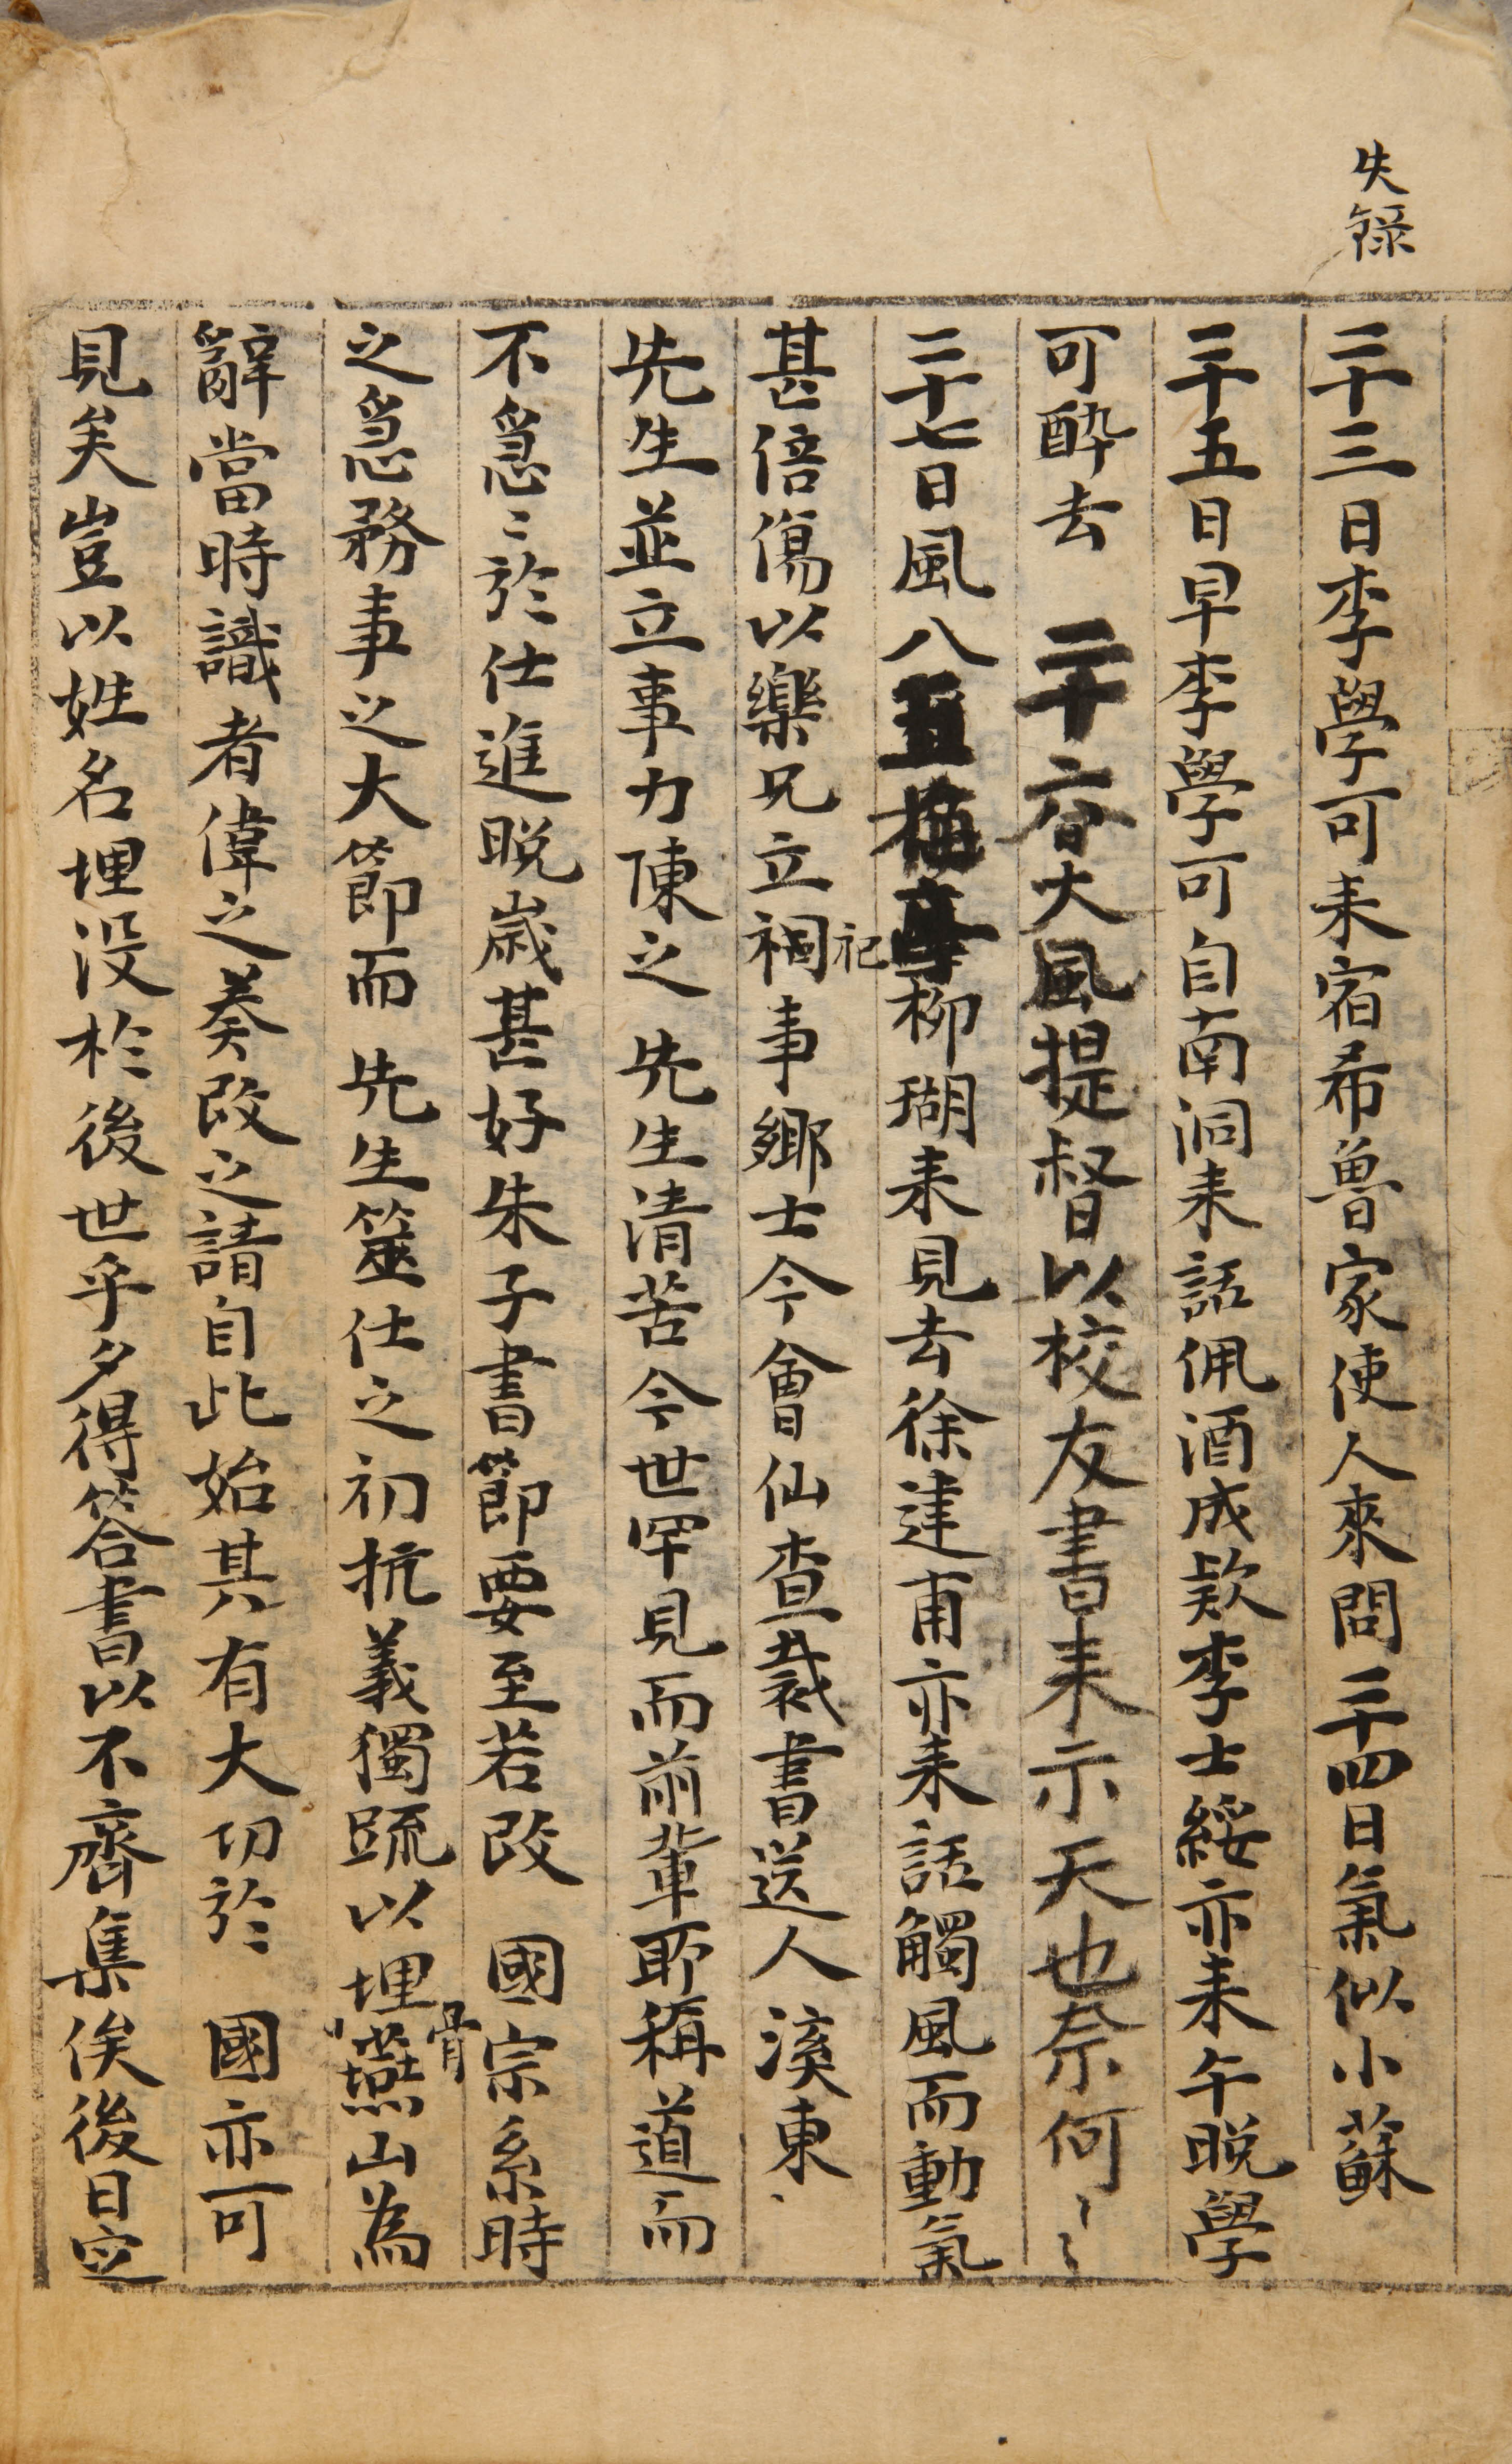 失錄
二十三日李學可耒宿希魯家使人來問二十四日氣似小蘇
二十五日早李學可自南洞耒話佩酒成欵李士綏亦耒午晚學
可醉去 二十六日大風提督以校友書耒示天也奈何〻〻
二十七日風八柳瑚耒見去徐建甫亦耒話觸風而動氣
甚倍傷以樂兄立祠事鄉士今會仙查裁書送人溪東
祀
先生並立事力陳之 先生清苦今世罕見而前輩耶稱道而
不急〻於仕進晚歲甚好朱子書節要至若改 國宗系時
之急務事之大節而 先生筮仕之初抗義獨疏以埋燕山為
骨
辭當時識者偉之奏改之請自此始其有大切於 國亦可
見矣豈以姓名埋没於後世乎夕得答書以不齊集俟後日定